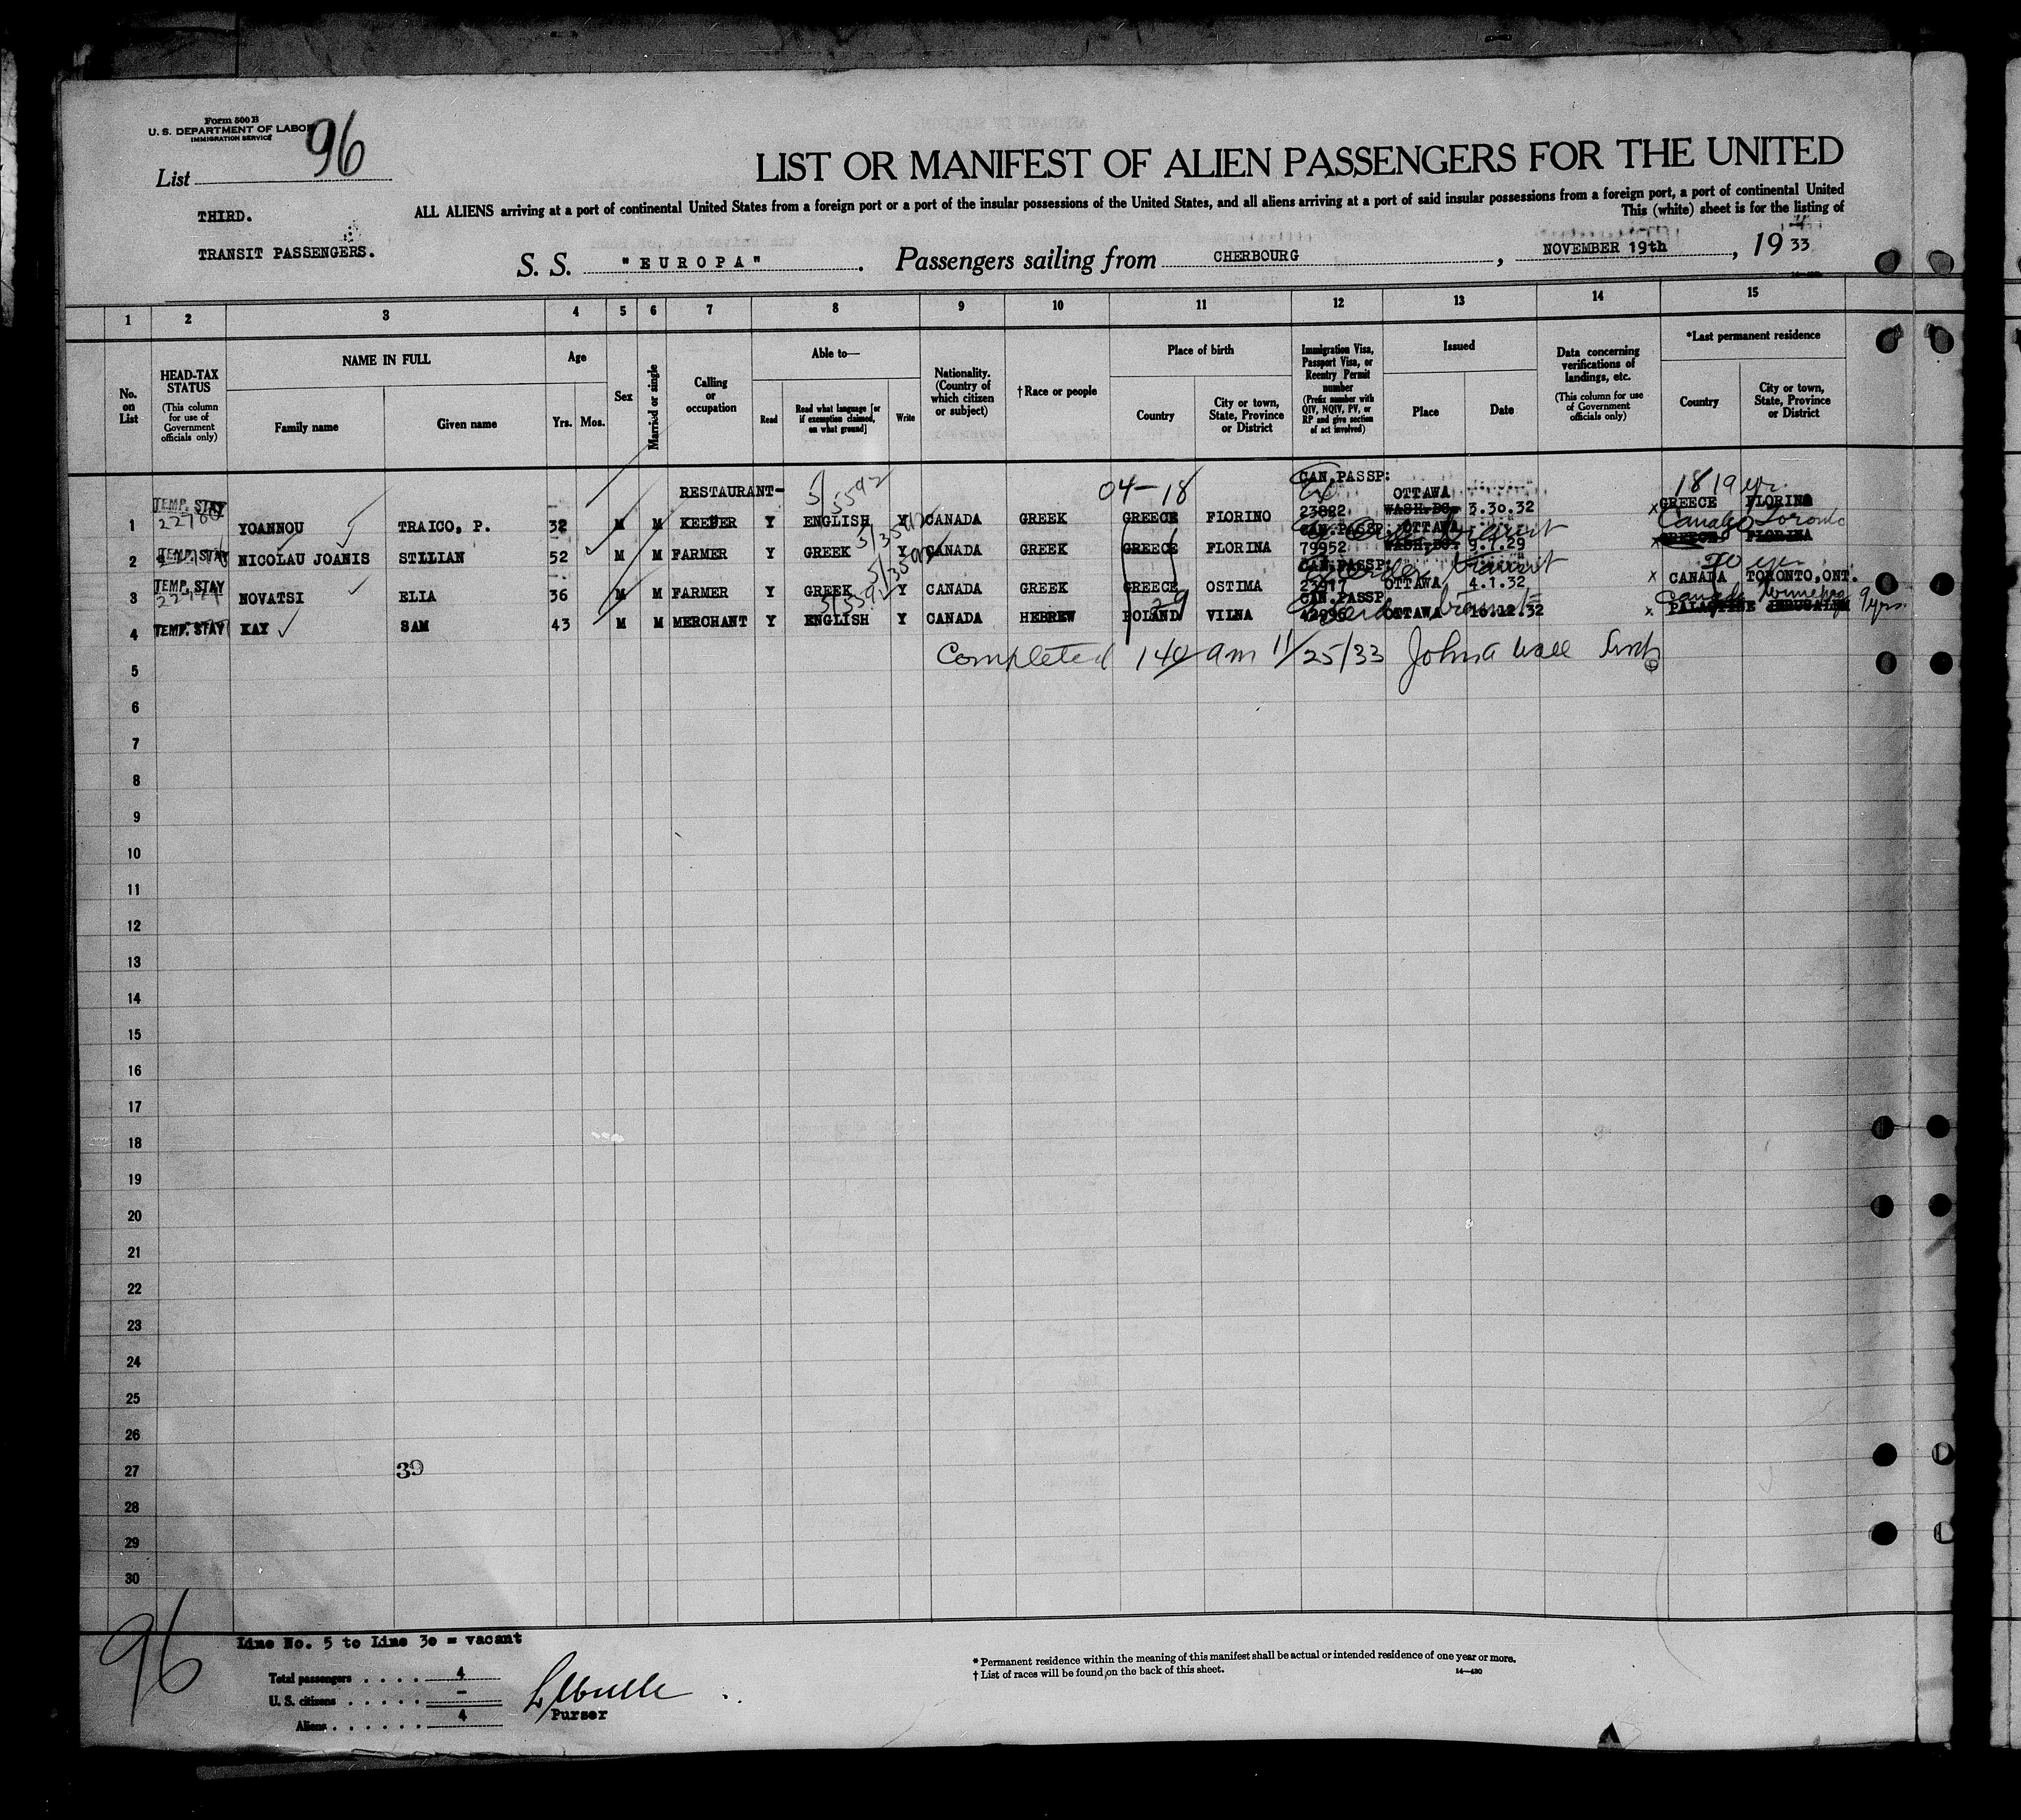 Form 500 B
U. S. DEPARTMENT OF LABOR
IMMIGRATION SERVICE
List 96
LIST OR MANIFEST OF ALIEN PASSENGERS FOR THE UNITED
THIRD.
ALL ALIENS arriving at a port of continental United States from a foreign port or a port of the insular possessions of the United States, and all aliens arriving at a port of said insular possessions from a foreign port, a port of continental United
This (white) sheet is for the listing of
TRANSIT PASSENGERS.
S. S. "EUROPA". Passengers sailing from CHERBOURG, NOVEMBER 19th, 19 33
1 2 3 4 5 6 7 8 9 10 11 12 13 14 15
No. on List
HEAD-TAX STATUS (This column for use of Government officials only)
NAME IN FULL
Family name
Given name
Age
Yrs. Mos.
Sex
Married or single
Calling or occupation
Able to—
Read
Read what language [or if exemption claimed, on what ground]
Write
Nationality. (Country of which citizen or subject)
† Race or people
Place of birth
Country
City or town, State, Province or District
Immigration Visa, Passport Visa, or Reentry Permit number (Prefix number with QIV, NQIV, PV, or RP and give section of act involved)
Issued
Place
Date
Data concerning verifications of landings, etc. (This column for use of Government officials only)
*Last permanent residence
Country
City or town, State, Province or District
04-18
1 TEMP. STAY YOANNOU TRAICO, P. 32 M M RESTAURANT-KEEPER Y ENGLISH Y CANADA GREEK GREECE FLORINO CAN.PASSP: 23822 OTTAWA WASH.DC. 3.30.32 x GREECE FLORINA
Canada Toronto
2 TEMP. STAY NICOLAU JOANIS STLLIAN 52 M M FARMER Y GREEK Y CANADA GREEK GREECE FLORINA CAN.PASSP: 79952 OTTAWA WASH.DC. 9.7.29 x GREECE FLORINA
3 TEMP. STAY NOVATSI ELIA 36 M M FARMER Y GREEK Y CANADA GREEK GREECE OSTIMA CAN.PASSP: OTTAWA 4.1.32 x CANADA TORONTO,ONT.
Canada Winnipeg 9 yrs.
4 TEMP. STAY KAY SAM 43 M M MERCHANT Y ENGLISH Y CANADA HEBREW POLAND VILNA CAN.PASSP OTTAWA 10.12.32 x PALASTINE JERUSALEM
5 Completed 140 am 11/25/33
6
7
8
9
10
11
12
13
14
15
16
17
18
19
20
21
22
23
24
25
26
27 39
28
29
30
96
Line No. 5 to Line 30 = vacant
Total passengers . . . . 4
U. S. citizens . . . . . –
Aliens . . . . . . . 4
Purser
* Permanent residence within the meaning of this manifest shall be actual or intended residence of one year or more.
† List of races will be found on the back of this sheet.
14—430